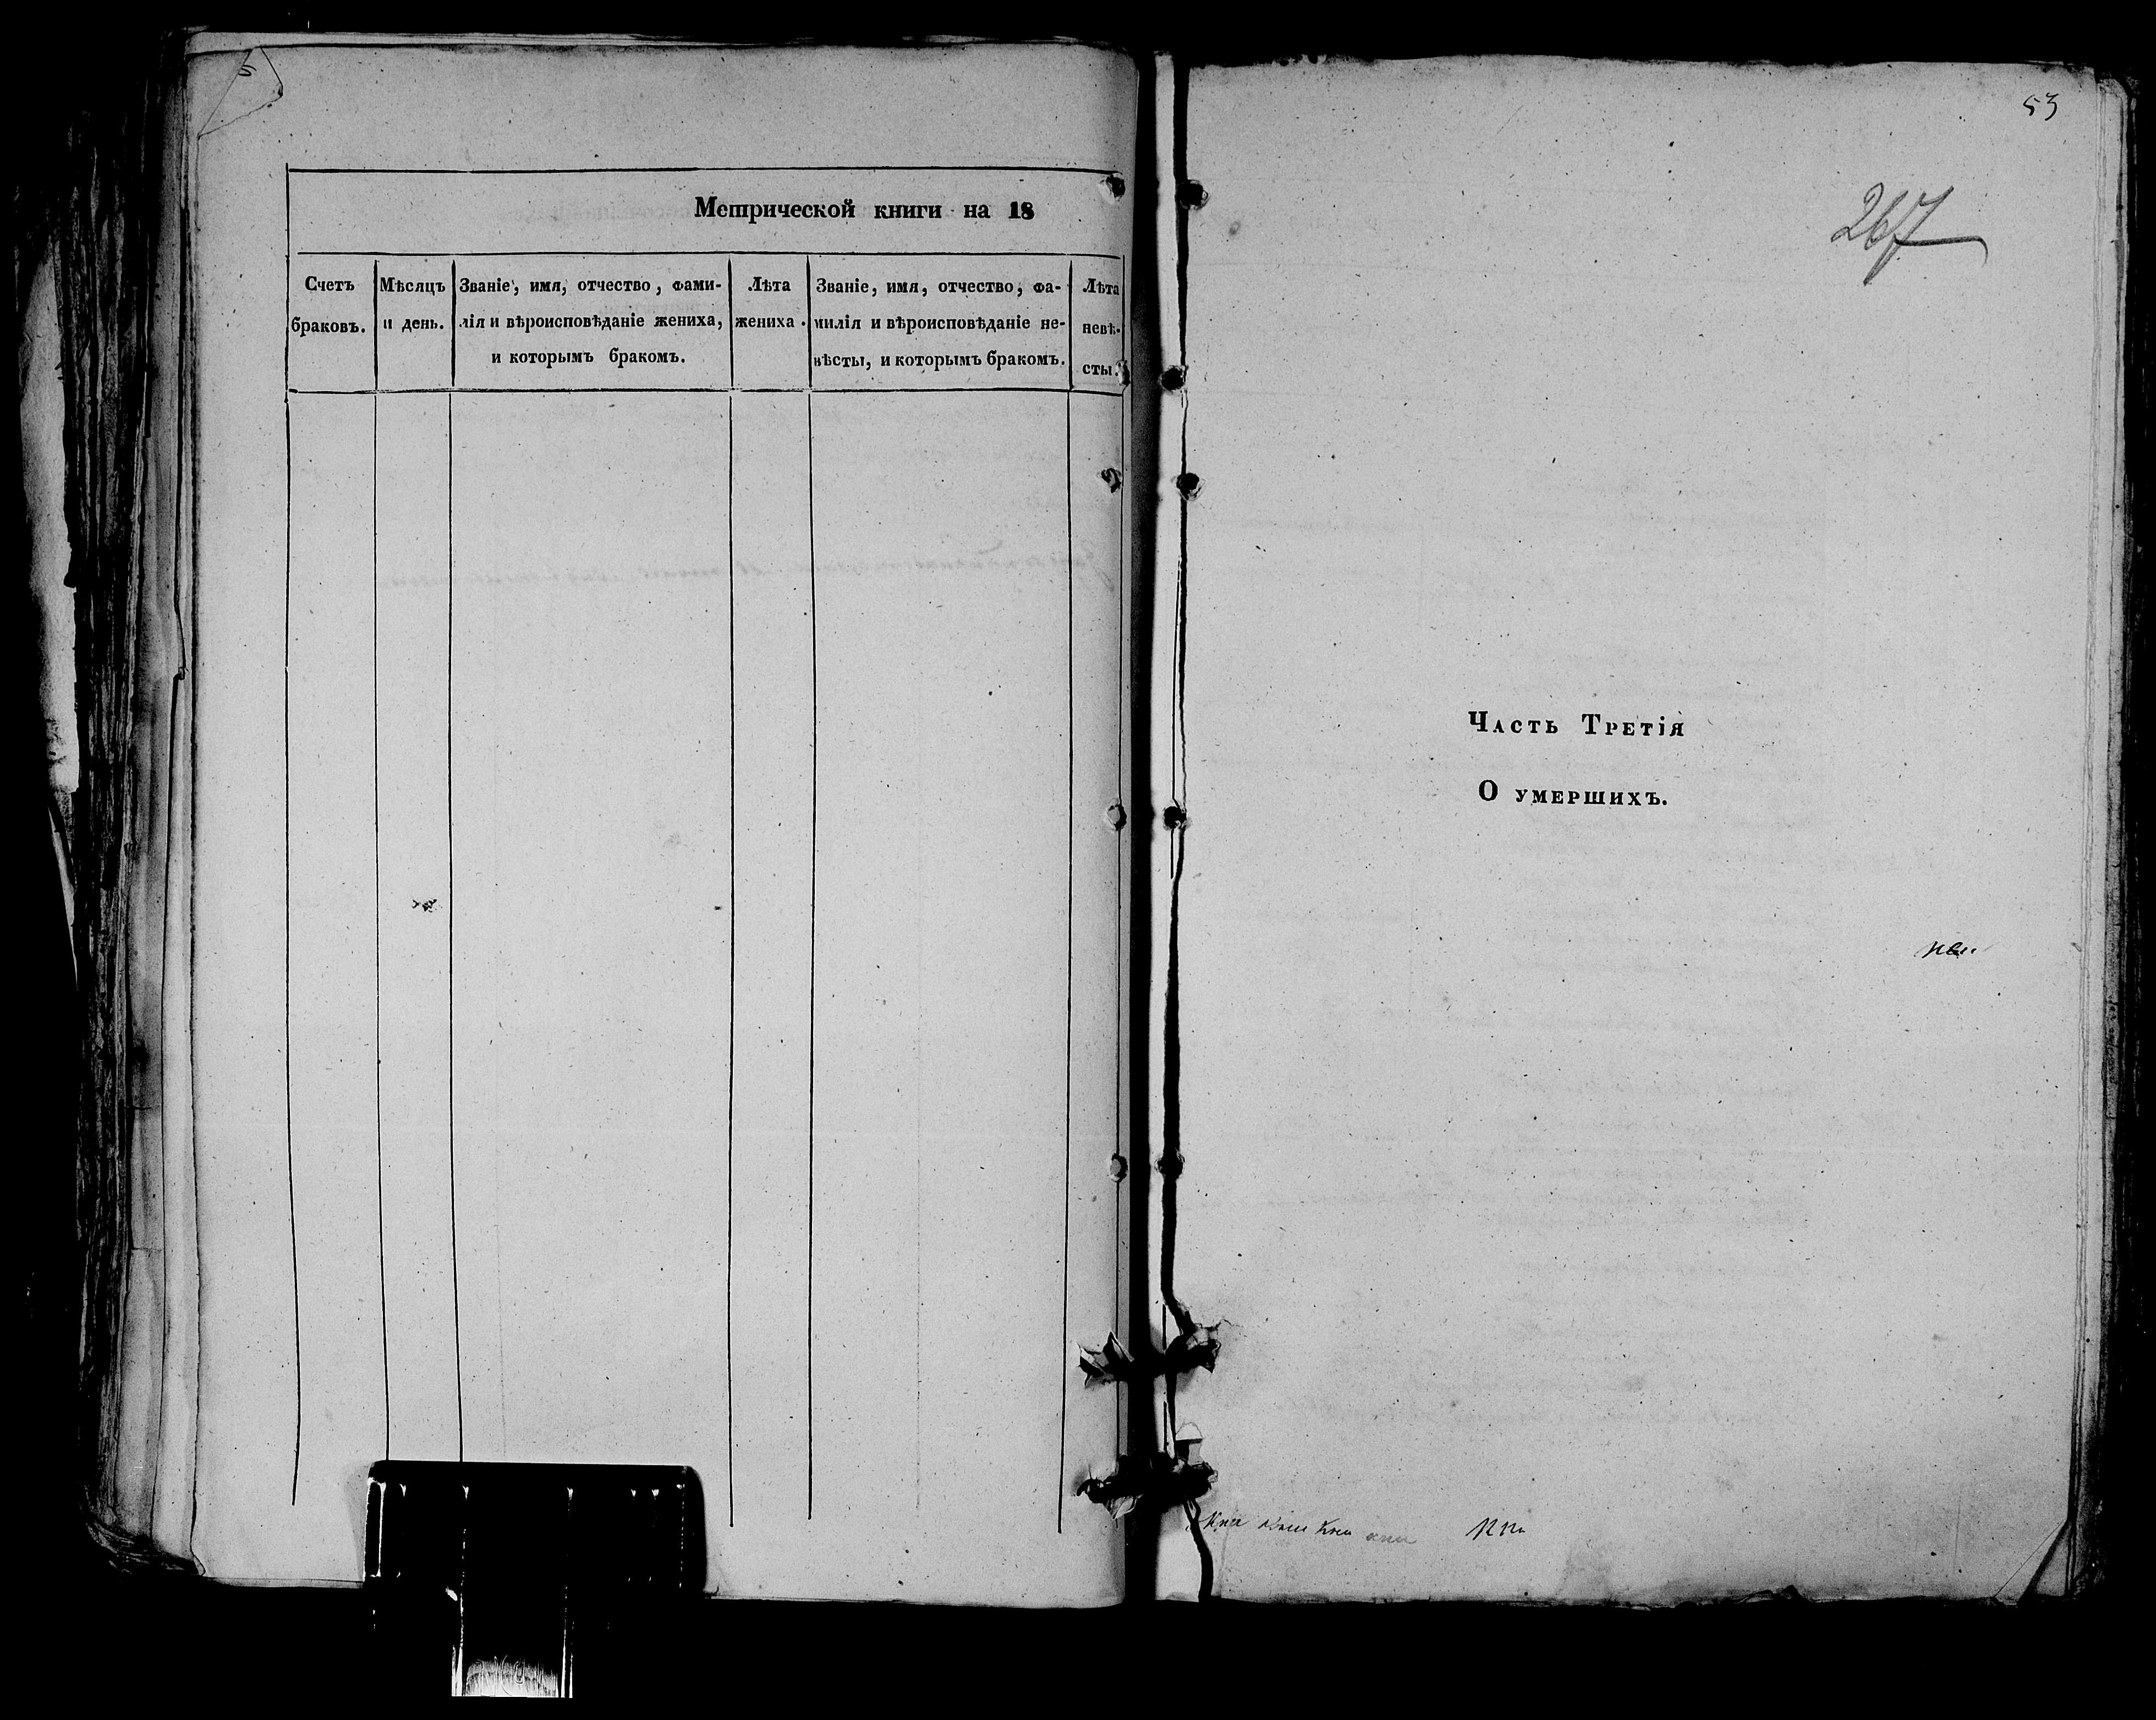 Метрической книги на 18
Счетъ браковъ.
Мѣсяцъ и день.
Званіе, имя, отчество, фами-
лія и вѣроисповѣданіе жениха,
и которымъ бракомъ.
Лѣта
жениха.
Званіе, имя, отчество, фа-
милія и вѣроисповѣданіе не-
вѣсты, и которымъ бракомъ.
Лѣта
невѣ-
сты.
53
267
Часть Третія
О умершихъ.